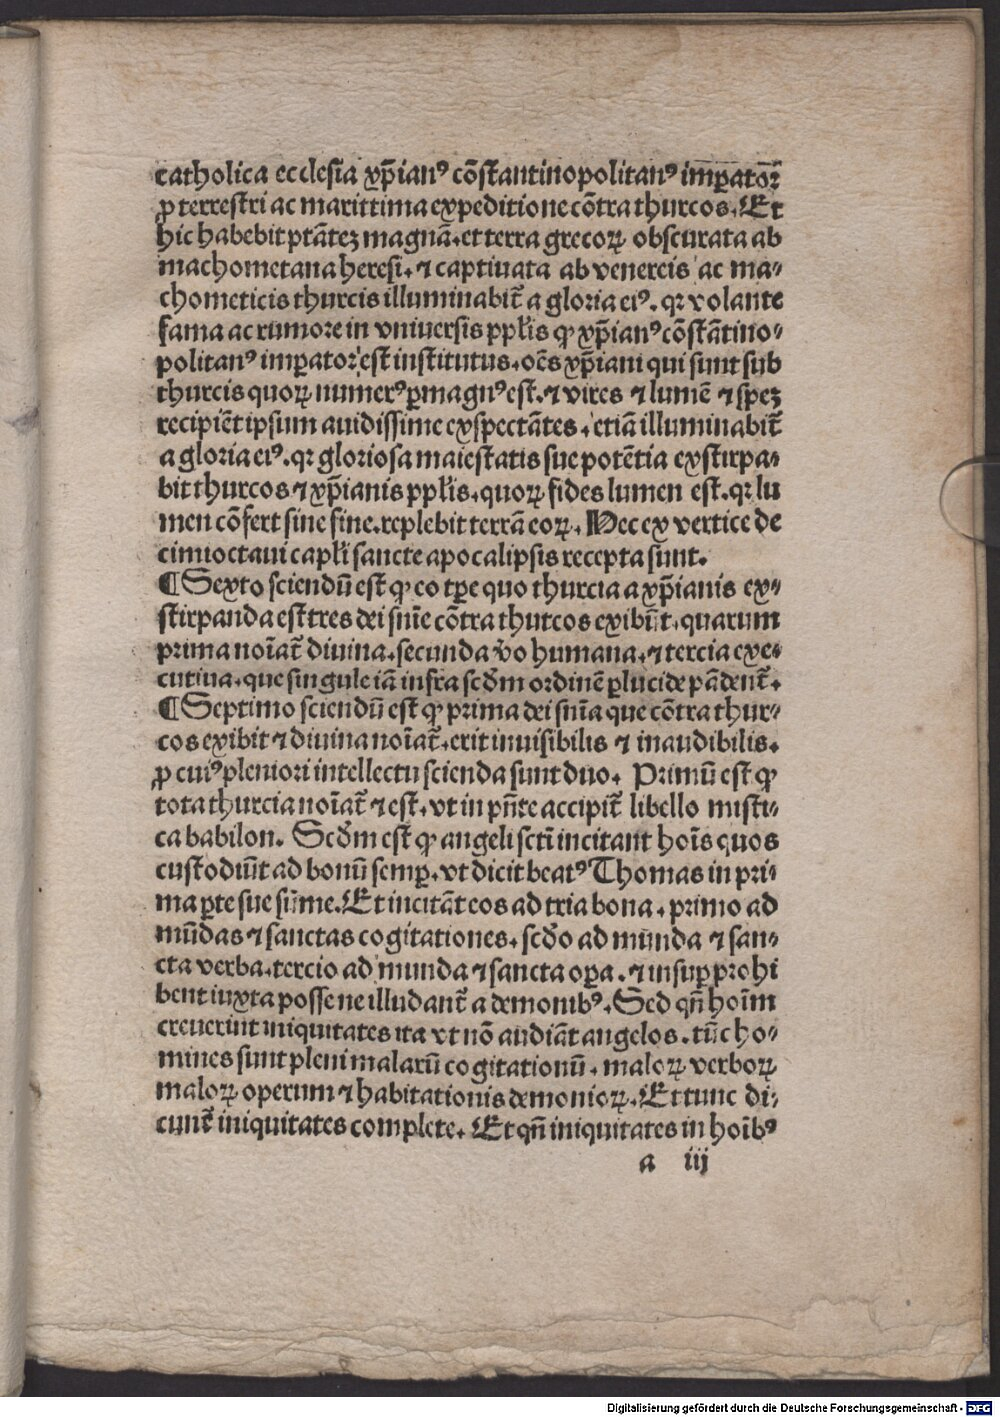 catholica ecclesia xp̄ianꝰ cōstantinopolitanꝰ imꝑator̄
ꝓ terrestri ac marittima expeditione cōtra thurcos. Et
hic habebit ptātez magnā. et terra grecoꝝ obscurata ab
machometana heresi. ⁊ captiuata ab venereis ac ma⸗
chometicis thurcis illuminabit̄ a gloria eiꝰ. qꝛ volante
fama ac rumore in vniuersis pplīs ꝙ xp̄ianꝰ cōstātino⸗
politanꝰ imꝑator est institutus. oēs xp̄iani qui sunt sub
thurcis quoꝝ numerꝰ ꝑmagnꝰ est. ⁊ vires ⁊ lumē ⁊ spez
recipiēt ipsum auidissime exspectātes. etiā illuminabit̄
a gloria eiꝰ. qꝛ gloriosa maiestatis sue potētia exstirpa⸗
bit thurcos ⁊ xp̄ianis pplīs. quoꝝ fides lumen est. qꝛ lu
men cōfert sine fine. replebit terrā eoꝝ. Hec ex vertice de
cimioctaui capłi sancte apocalipsis recepta sunt.
¶ Sexto sciendū est ꝙ eo tꝑe quo thurcia a xp̄ianis ex⸗
stirpanda est tres dei snīe cōtra thurcos exibūt. quarum
prima noīat̄ diuina. secunda v̄o humana. ⁊ tercia exe⸗
cutiua. que singule iā infra scd̄m ordinē ꝑlucide pādent̄.
¶ Septimo sciendū est ꝙ prima dei snīa que cōtra thur⸗
cos exibit ⁊ diuina noīat̄. erit inuisibilis ⁊ inaudibilis.
ꝓ cuiꝰ pleniori intellectu scienda sunt duo. Primū est ꝙ
tota thurcia noīat̄ ⁊ est. vt in pn̄te accipit̄ libello misti⸗
ca babilon. Scd̄m est ꝙ angeli sctī incitant hoīs quos
custodiūt ad bonū semꝑ. vt dicit beatꝰ Thomas in pri⸗
ma ꝑte sue sūme. Et incitāt eos ad tria bona. primo ad
mūdas ⁊ sanctas cogitationes. scd̄o ad munda ⁊ san⸗
cta verba. tercio ad munda ⁊ sancta oꝑa. ⁊ insuꝑ prohi
bent iuxta posse ne illudant̄ a demonibꝰ. Sed qn̄ hoīm
creuerint iniquitates ita vt nō audiāt angelos. tūc ho⸗
mines sunt pleni malarū cogitationū. maloꝝ verboꝝ
maloꝝ operum ⁊ habitationis demonioꝝ. Et tunc di⸗
cunt̄ iniquitates complete. Et qn̄ iniquitates in hoībꝰ
a iij
Digitalisierung gefördert durch die Deutsche Forschungsgemeinschaft - DFG